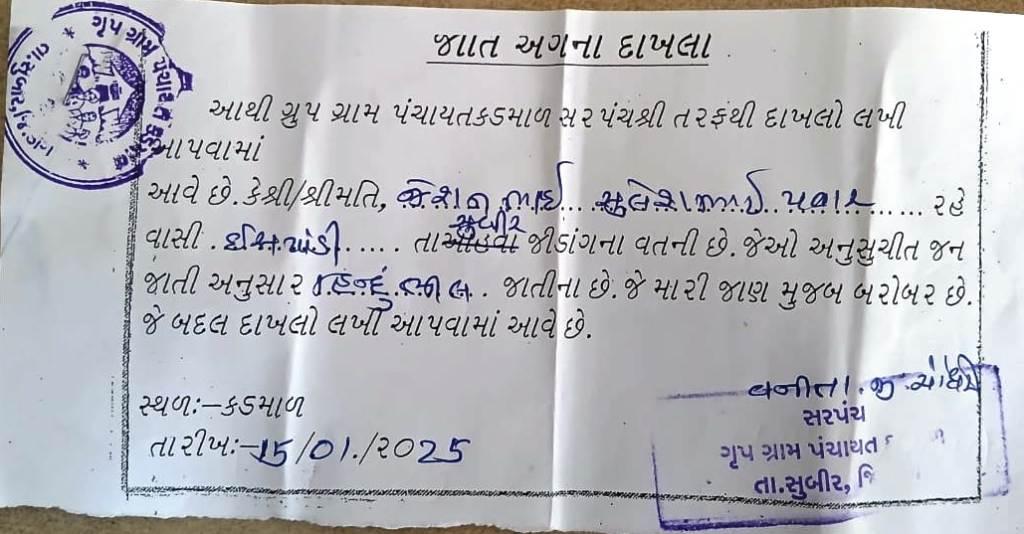 ગૃપ ગ્રામ પંચાયત
જાત અગના દાખલા
આથી ગ્રુપ ગ્રામ પંચાયતકડમાળ સરપંચશ્રી તરફથી દાખલો લખી
આપવામાં
આવે છે. કેશ્રી/શ્રીમતિ, ... સુલેશભાઈ પવાર ...... રહે
સુબીર
વાસી . ઈસખાંડી ..... તાઆહવા જીડાંગના વતની છે. જેઓ અનુસુચીત જન
જાતી અનુસાર હિન્દુ ભીલ .. જાતીના છે. જે મારી જાણ મુજબ બરોબર છે.
જે બદલ દાખલો લખી આપવામાં આવે છે.
સ્થળઃ-કડમાળ
તારીખઃ-15/01./૨૦25
વનીતા. જી.
સરપંચ
ગૃપ ગ્રામ પંચાયત
તા.સુબીર, જિ